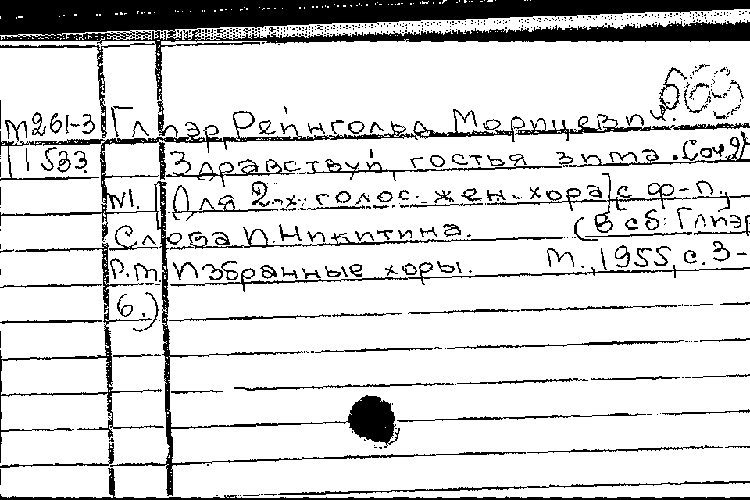 669
М261-3 Глиэр, Рейнгольд Морицевич.
11533 Здравствуй, гостья зима. Соч.
М. [Для 2-х голос. жен. хора] с ф-п.,
Слова И. Никитина. (В сб: Глиэр
Р.М. Избранные хоры. М., 1955, с. 3-
6.)